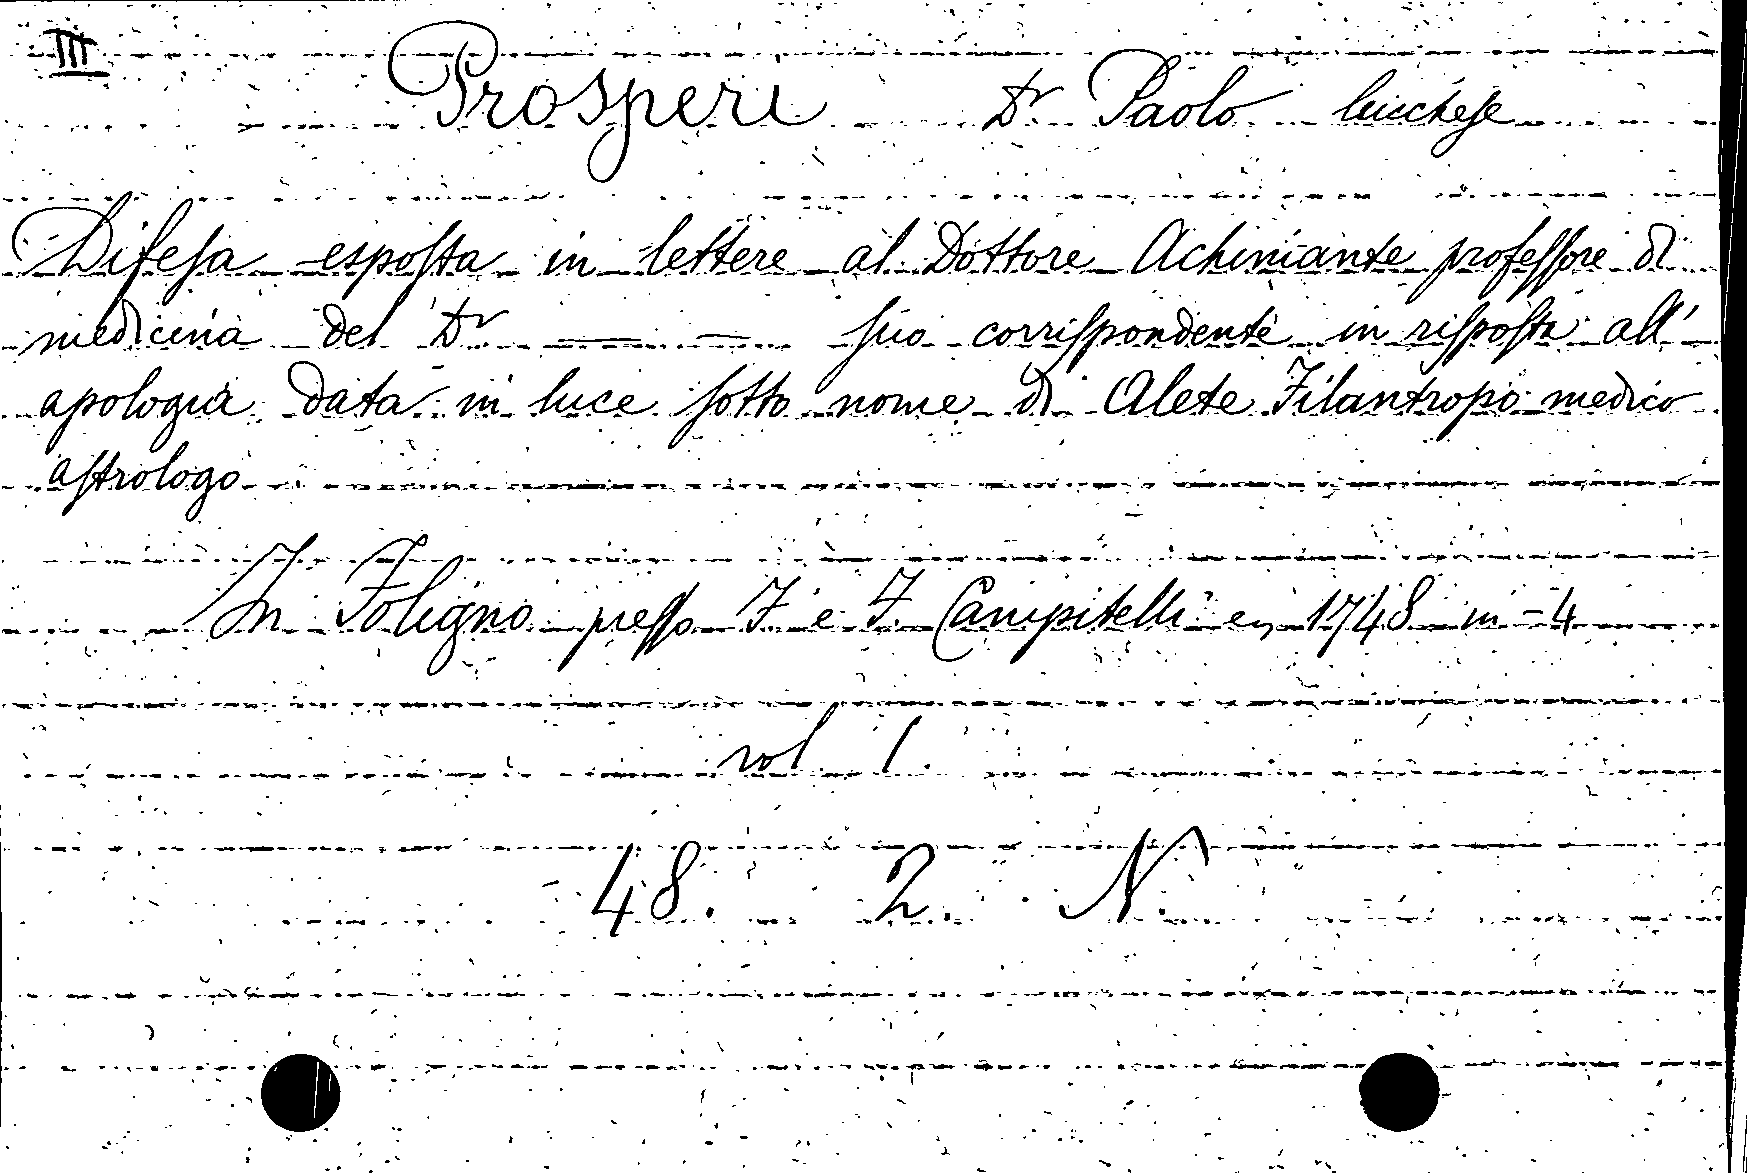 III
Prosperi Dr Paolo lucchese
Difesa esposta in lettere al Dottore Achiniante professore di
medicina del Dr —— — suo corrispondente in risposta all'
apologia data in luce sotto nome di Alete Filantropo medico
astrologo
In Foligno presso F e F. Campitelli 1748 in-4
vol 1.
48. 2. N.